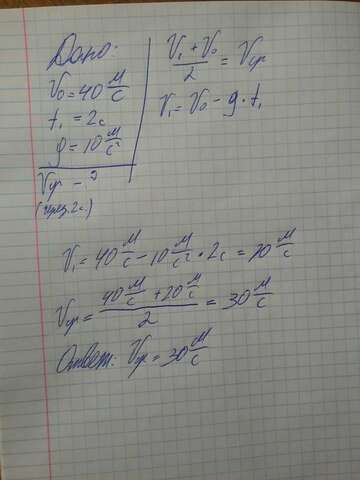 Дано:
V₀ = 40 м/с
t₁ = 2с
g = 10 м/с²
Vср - ?
(через 2с.)
(V₁ + V₀)/2 = Vср
V₁ = V₀ - g · t₁
V₁ = 40 м/с - 10 м/с² · 2с = 20 м/с
Vср = (40 м/с + 20 м/с)/2 = 30 м/с
Ответ: Vср = 30 м/с